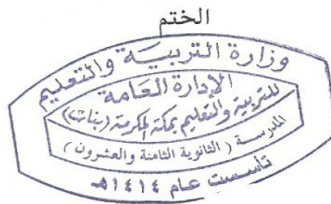 الختم
وزارة التربية والتعليم
الإدارة العامة
للتربية والتعليم بمكة المكرمة (بنات)
المدرسة (الثانوية الثامنة والعشرون)
تأسست عام ١٤١٤هـ